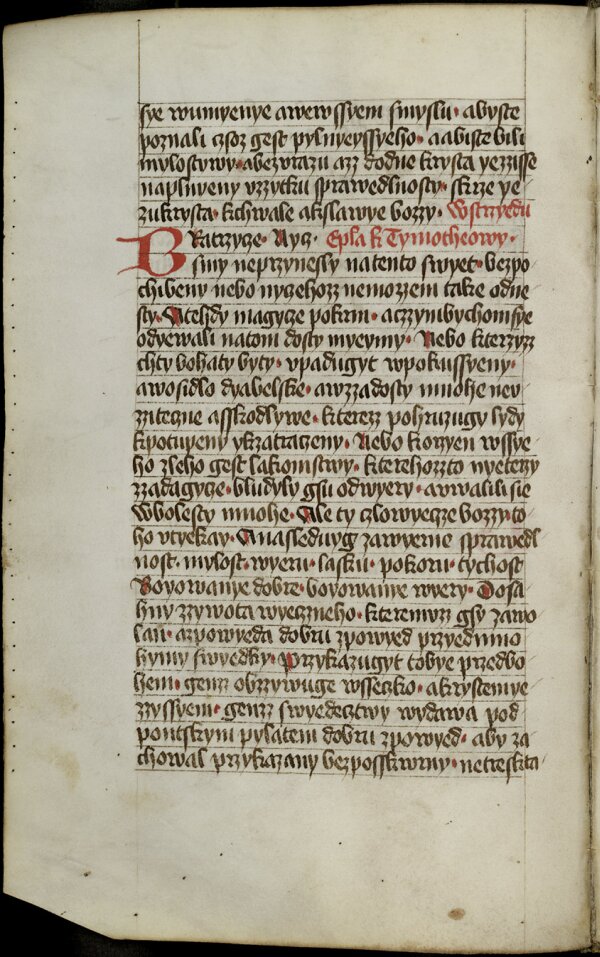 sye wumyenye awewssyem smyslu · abyste
poznali czoz gest pylnyeyssyeho · aabiste bili
mylostywy · abezurazu azz dodne krysta yezzisse
naplnyeny vzzytku sprawedlnosty · skrze ye
zukrysta · kchwale akslawye bozzy · Wstrzyedu
Bratrzycze · Nycz · Epla k Tymotheowy ·
smy neprzynesly natento swyet · bezpo
chibeny nebo nyczehozz nemozzem take odne
sty · Atehdy magycze pokrm · aczzimbychom sye
odyewali natom dosty myeymy · Nebo kterzyzz
chty bohaty byty · vpadugyt wpokussyeny ·
awosidlo dyabelske · awzzadosty mnohe neu
zzitecne asskodlywe · kterezz pohruzugy lydy
kpotupyeny ykzatraczeny · Nebo korzyen wssye
ho zleho gest lakomstwy · kterehozzto nyeterzy
zzadagycze · bludyly gsu odwyery · auwalili sie
Wbolesty mnohe · Ale ty czlowyecze bozzy · to
ho vtyekay · Anasleduyg zawyerne sprawedl
nost · mylost · wyeru · lasku · pokoru · tychost
Boyowanye dobre · boyowanye wyery · Dosa
hny zzywota wyeczneho · kteremuzz gsy zawo
lan · azpowyeda dobru zpowyed przyedmno
hymy swyedky · Przykazugyt tobye przedbo
hem · genzz obzzywuge wsseczko · akrystem ye
zzyssyem · genzz swyedecztwy wydawa pod
pontskym pylatem dobru zpowyed · aby za
chowal przykazany bezposskwrny · netreskta